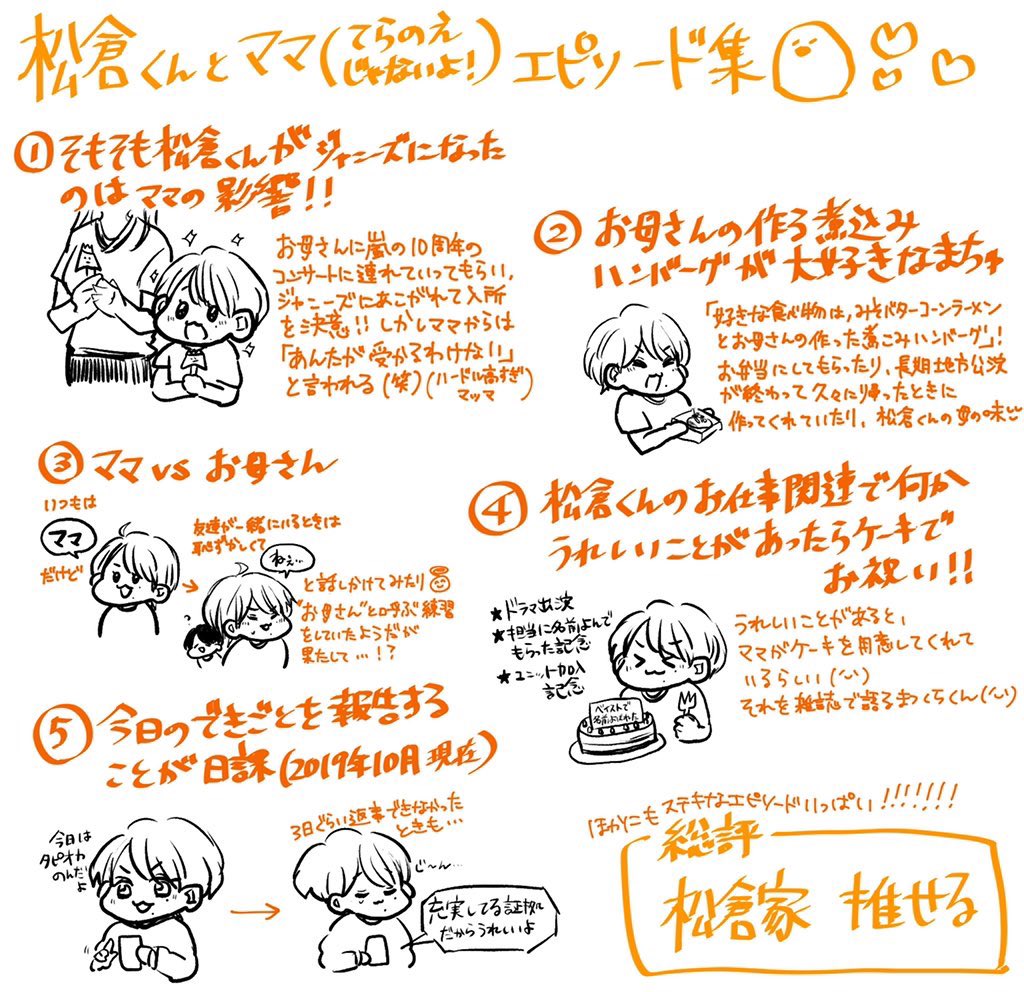 松倉くんとママ(てらのえじゃないよ!)エピソード集
① そもそも松倉くんがジャニーズになった
のはママの影響!!
お母さんに嵐の10周年の
コンサートに連れていってもらい、
ジャニーズにあこがれて入所
を決意!! しかしママからは
「あんたが受かるわけない」
と言われる(笑)(ハードル高すぎ
マッマ)
② お母さんの作る煮込み
ハンバーグが大好きなまちゅ
「好きな食べ物は、みそバターコーンラーメン
とお母さんの作った煮こみハンバーグ」!
お弁当にしてもらったり、長期地方公演
が終わって久々に帰ったときに
作ってくれていたり、松倉くんの母の味
③ ママ vs お母さん
いつもは
ママ
だけど
友達が一緒にいるときは
恥ずかしくて
ねぇ…
と話しかけてみたり
"お母さん"と呼ぶ練習
をしていたようだが
果たして…!?
④ 松倉くんのお仕事関連で何か
うれしいことがあったらケーキで
お祝い!!
★ドラマ出演
★担当に名前よんで
もらった記念
★ユニット加入
記念
ベイストで
名前よばれた
うれしいことがあると、
ママがケーキを用意してくれて
いるらしい(^^)
それを雑誌で語るまつくらくん(^^)
⑤ 今日のできごとを報告する
ことが日課(2019年10月現在)
今日は
タピオカ
のんだ
よ
3日ぐらい返事できなかった
ときも…
じ〜ん…
充実してる証拠
だからうれしいよ
ほかにもステキなエピソードいっぱい!!!!!!!
総評
松倉家 推せる